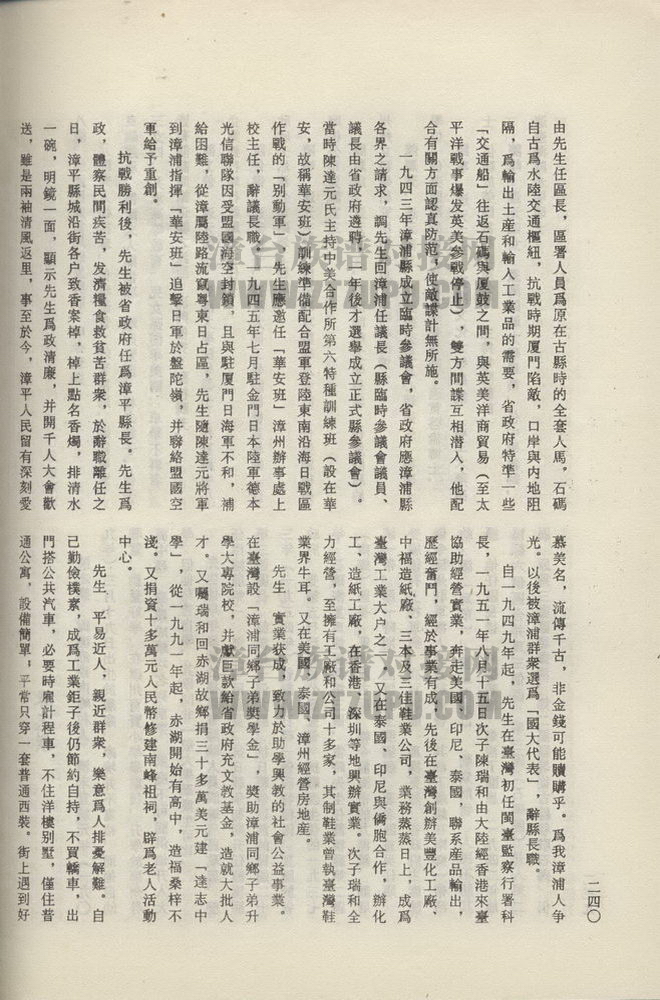 由先生任區長，區署人員爲原在古縣時的全套人馬。石碼
自古爲水陸交通樞紐，抗戰時期厦門陷敵，口岸與内地阻
隔，爲輸出土産和輸入工業品的需要，省政府特準一些
「交通船」往返石碼與厦鼓之間，與英美洋商貿易（至太
平洋戰事爆发英美參戰停止），雙方間諜互相潜入，他配
合有關方面認真防范，使敵諜計無所施。
一九四三年漳浦縣成立臨時參議會，省政府應漳浦縣
各界之請求，調先生回漳浦任議長（縣臨時參議會議員、
議長由省政府遴聘，一年後才選舉成立正式縣參議會）。
當時陳達元氏主持中美合作所第六特種訓練班（設在華
安，故稱華安班），訓練準備配合盟軍登陸東南沿海日戰區
作戰的「别動軍」，先生應邀任「華安班」漳州辦事處上
校主任，辭議長職。一九四五年七月駐金門日本陸軍德本
光信聯隊因受盟國海空封鎖，且與駐厦門日海軍不和，補
給困難，從漳屬陸路流竄粤東日占區，先生隨陳達元將軍
到漳浦指揮「華安班」追擊日軍於盤陀嶺，并聯絡盟國空
軍給予重創。
抗戰勝利後，先生被省政府任爲漳平縣長。先生爲
政，體察民間疾苦，发濟糧食救貧苦群衆，於辭職離任之
日，漳平縣城沿街各户致香案棹，棹上點名香燭，排清水
一碗，明鏡一面，顯示先生爲政清廉，并開千人大會歡
送，雖是兩袖清風返里，事至於今，漳平人民留有深刻愛
慕美名，流傳千古，非金錢可能贖購乎。爲我漳浦人争
光。以後被漳浦群衆選爲「國大代表」，辭縣長職。
自一九四九年起，先生在臺灣初任閩臺監察行署科
長，一九五一年八月十五日次子陳瑞和由大陸經香港來臺
協助經營實業，奔走美國、印尼、泰國，聯系産品輸出，
歷經奮鬥，經於事業有成，先後在臺灣創辦美豐化工廠、
中福造紙廠、三本及三佳鞋業公司，業務蒸蒸日上，成爲
臺灣工業大户之一，又在泰國、印尼與僑胞合作，辦化
工、造紙工廠，在香港、深圳等地興辦實業。次子瑞和全
力經營，至擁有工廠和公司十多家，其制鞋業曾執臺灣鞋
業界牛耳。又在美國、泰國、漳州經營房地産。
先生，實業获成，致力於助學興教的社會公益事業。
在臺灣設「漳浦同鄉子弟奬學金」，奬助漳浦同鄉子弟升
學大專院校，并獻巨款給省政府充文教基金，造就大批人
才。又囑瑞和回赤湖故鄉捐三十多萬美元建「達志中
學」，從一九九一年起，赤湖開始有高中，造福桑梓不
淺。又捐資十多萬元人民幣修建南峰祖祠，辟爲老人活動
中心。
先生，平易近人，親近群衆，樂意爲人排憂解難。自
己勤儉樸素，成爲工業鉅子後仍節約自持，不買轎車，出
門搭公共汽車，必要時雇計程車，不住洋樓别墅，僅住普
通公寓，設備簡單，平常只穿一套普通西裝。街上遇到好
二四〇
漳台族谱对接网